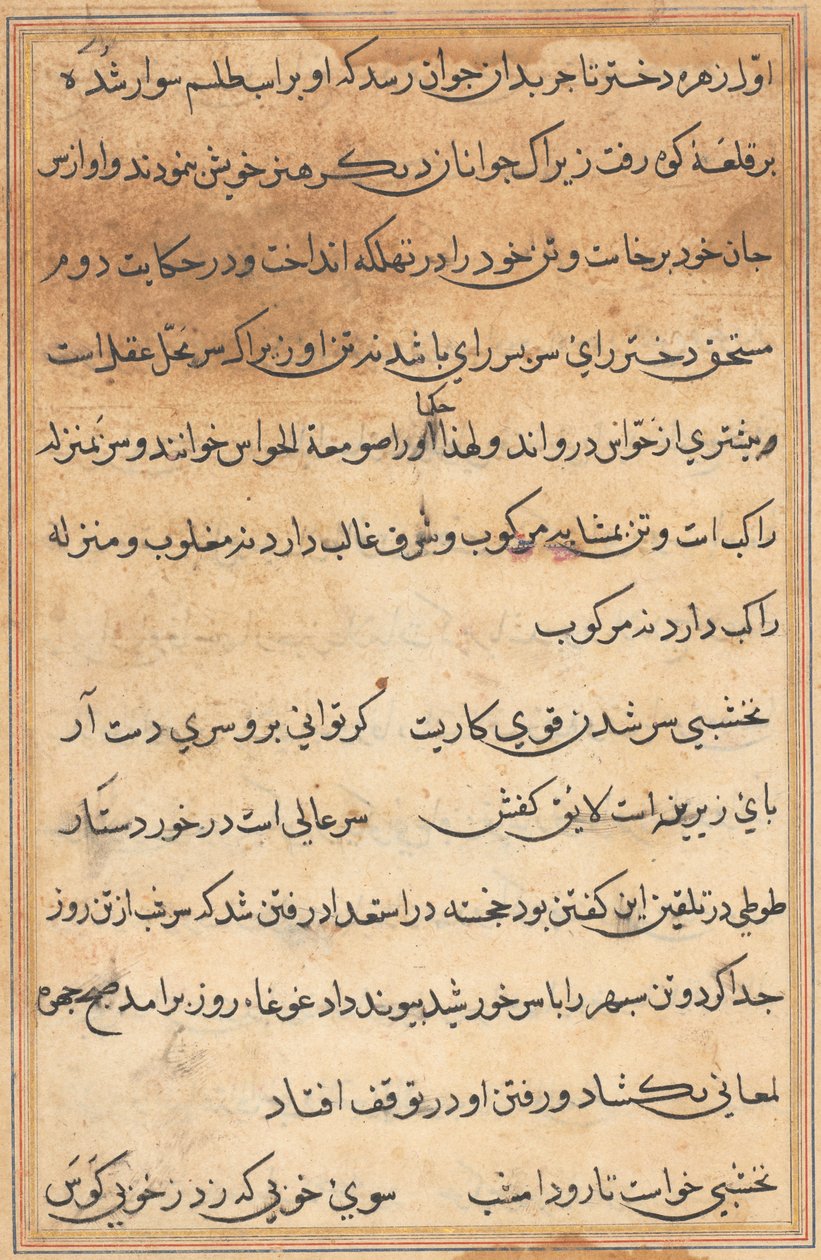 اوّل زهره دختر تاجر بدان جوان رسد که او بر اسب طلسم سوار شده
بر قلعَهٔ کوه رفت زیراک جوانان دیگر هنر خویش بنمودند و او از سر
جان خود برخاست و تن خود را در تهلکه انداخت و در حکایت دوم
مستحق دختر رایٔ سر بسر رای باشد نه تن او زیراک سر محلّ عقل است
و بیشتری از حَوّاس درو اند و لهذا حکما او را صومعة الحواس خوانند و سر بمنزله
راکب است و تن بمثابه مرکوب و شرف غالب دارد نه مغلوب و منزله
راکب دارد نه مرکوب
نخشبی سر شدن قوی کاریت کر توانی برو سری دست آر
بایٔ زیرینه است لایٔق کفش سر عالی است در خور دستار
طوطی در تلقین این کفتن بود خجسته در استعداد رفتن شد که سر شب از تن روز
جدا کرد و تن سبهر را با سر خورشید بیوند داد غوغاء روز برامد صبح جهره
لمعانی بکشاد و رفتن او در توقف افتاد
نخشبی خواست تا رود امشب سویٔ خوبی که زد ز خوبی کَوسَ